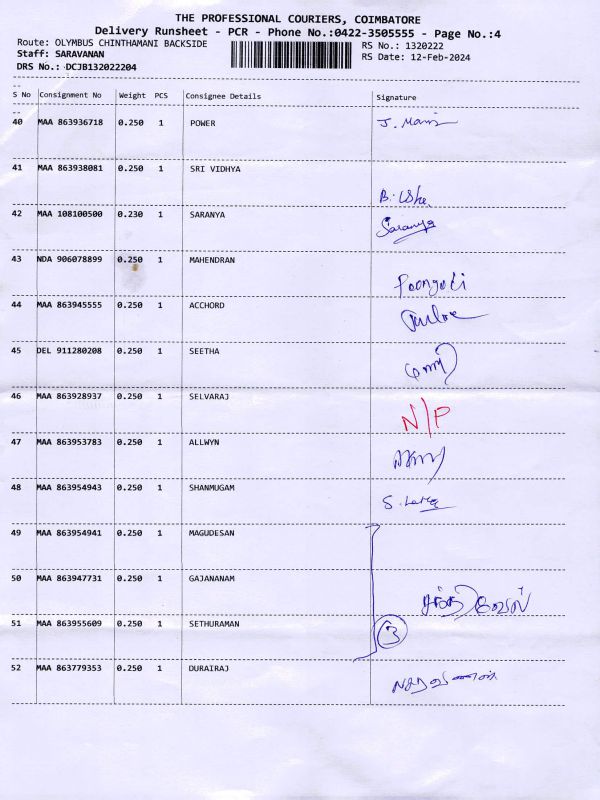 THE PROFESSIONAL COURIERS, COIMBATORE
Delivery Runsheet - PCR - Phone No.:0422-3505555 - Page No.:4
Route: OLYMBUS CHINTHAMANI BACKSIDE RS No.: 1320222
Staff: SARAVANAN RS Date: 12-Feb-2024
DRS No.: DCJB132022204
--
S No Consignment No Weight PCS Consignee Details Signature
--
40 MAA 863936718 0.250 1 POWER J. Mani
41 MAA 863938081 0.250 1 SRI VIDHYA B. Usha
42 MAA 108100500 0.230 1 SARANYA Saranya
43 NDA 906078899 0.250 1 MAHENDRAN
44 MAA 863945555 0.250 1 ACCHORD
45 DEL 911280208 0.250 1 SEETHA
46 MAA 863928937 0.250 1 SELVARAJ N/P
47 MAA 863953783 0.250 1 ALLWYN
48 MAA 863954943 0.250 1 SHANMUGAM
49 MAA 863954941 0.250 1 MAGUDESAN
50 MAA 863947731 0.250 1 GAJANANAM
51 MAA 863955609 0.250 1 SETHURAMAN 3
52 MAA 863779353 0.250 1 DURAIRAJ